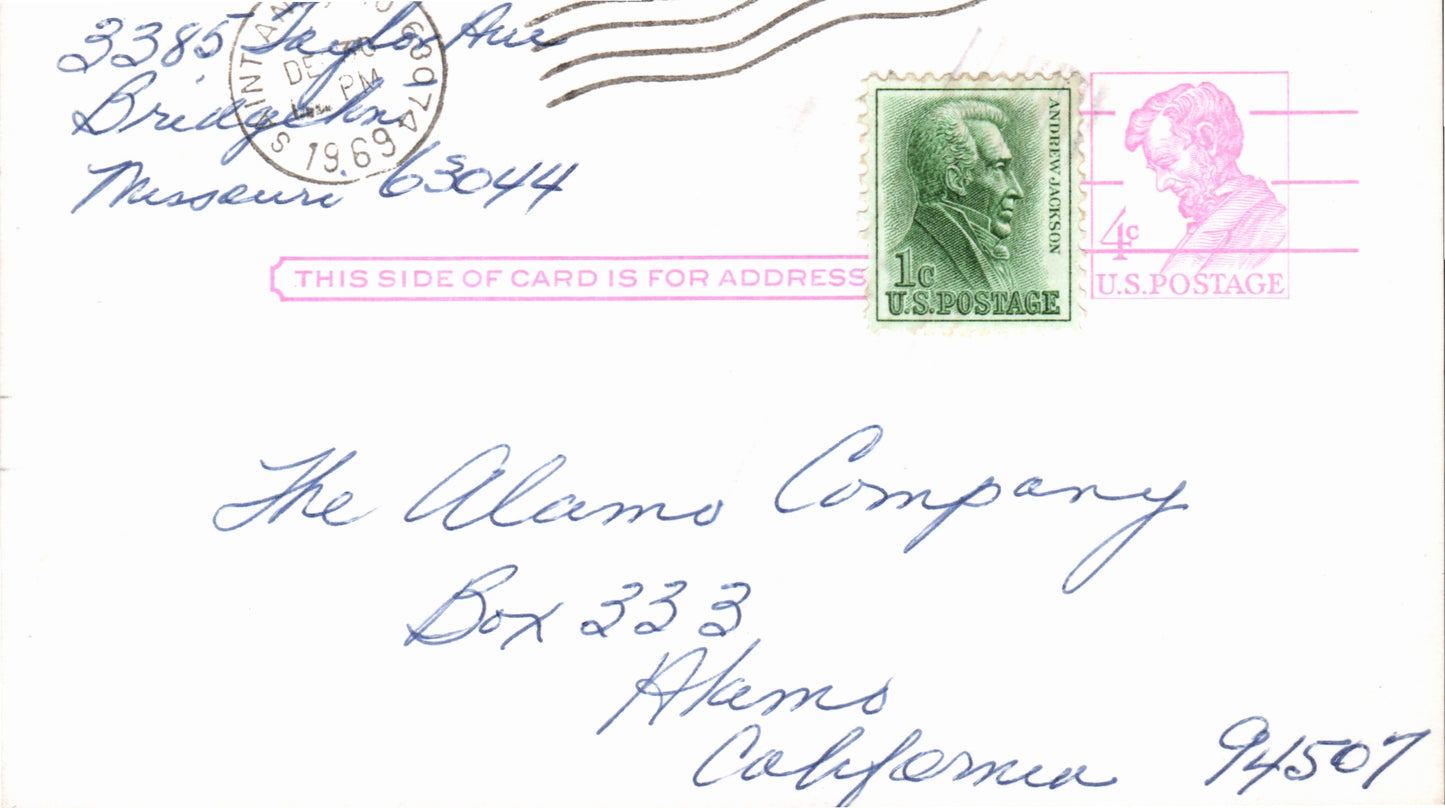 3385 Taylor Ave
Bridgeton
Missouri. 63044
SAINT ANN MO 63074
DE
PM
1969
THIS SIDE OF CARD IS FOR ADDRESS
ANDREW JACKSON
1c
U.S. POSTAGE
4c
U.S. POSTAGE
The Alamo Company
Box 333
Alamo
California 94507